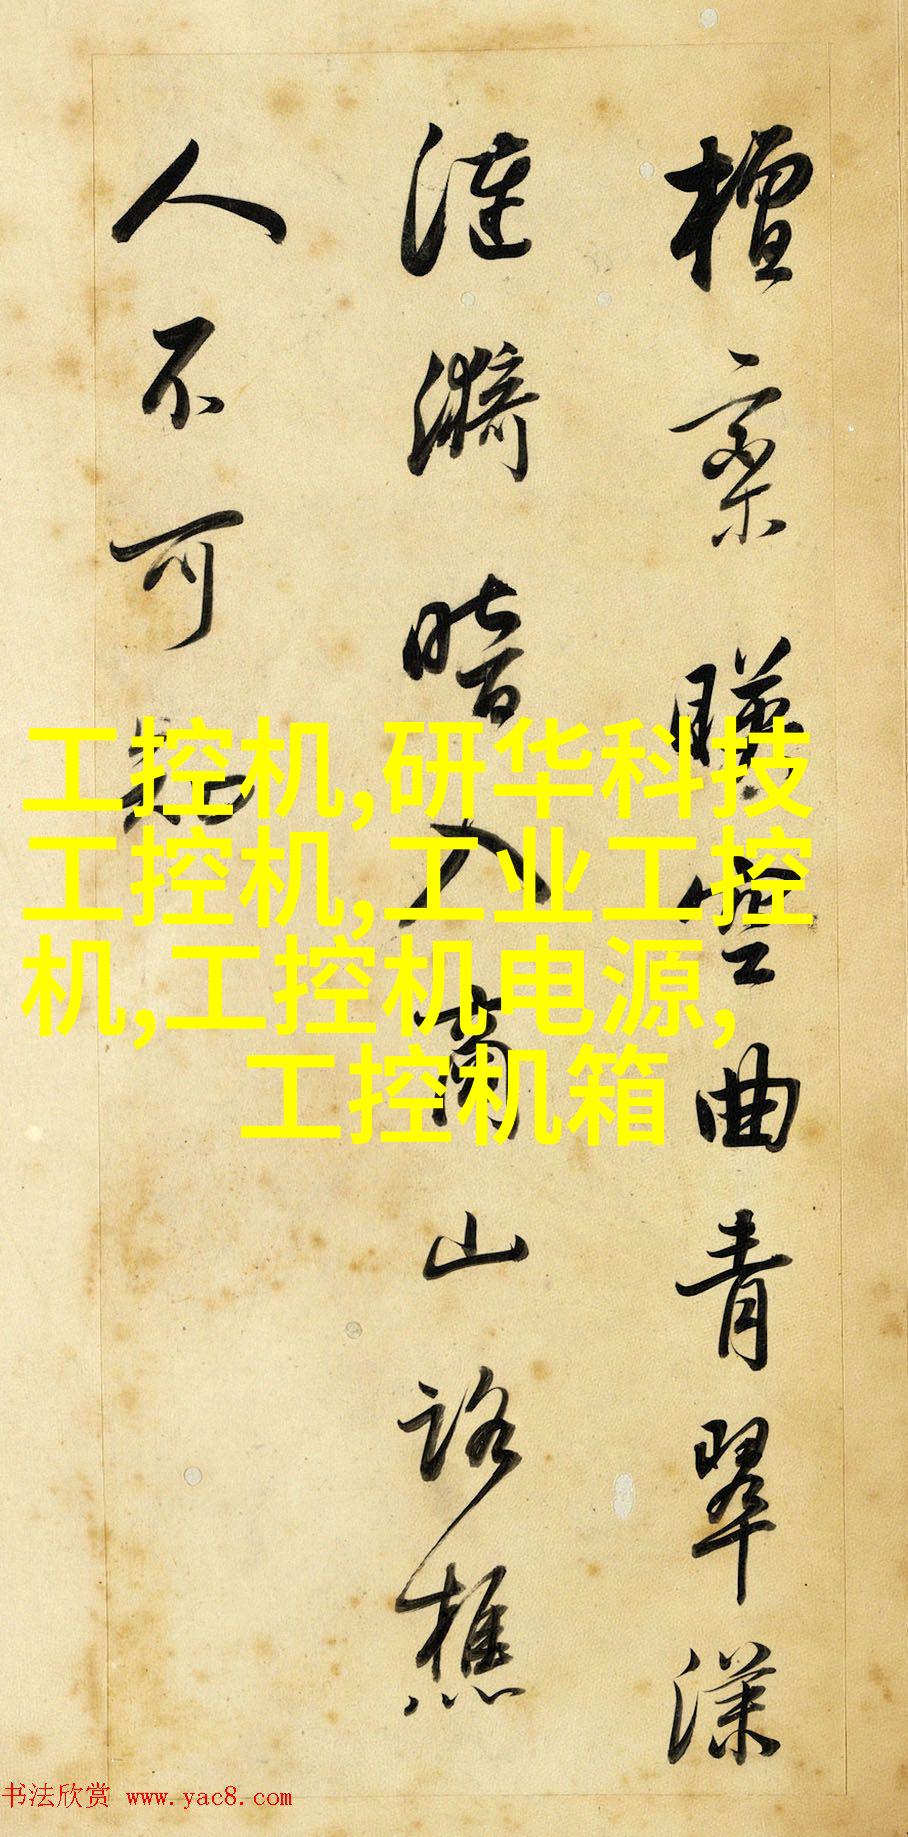 檀欒暎空曲青翠漾
漣漪暗入商山路樵
人不可知
工控机,研华科技
工控机,工业工控
机,工控机电源,
工控机箱
书法欣赏 www.yac8.com